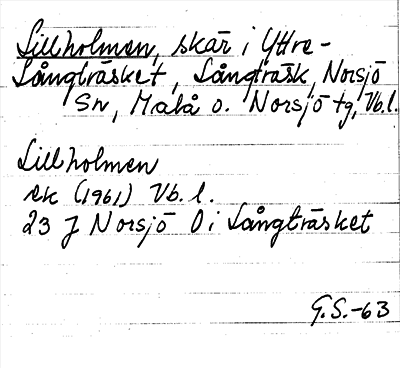 Lillholmen, skär i Yttre-
Långträsket, Långträsk, Norsjö
Sn, Malå o. Norsjö tg, Vb.l.
Lillholmen
ek (1961) Vb. l.
23 J Norsjö O i Långträsket
G.S.-63